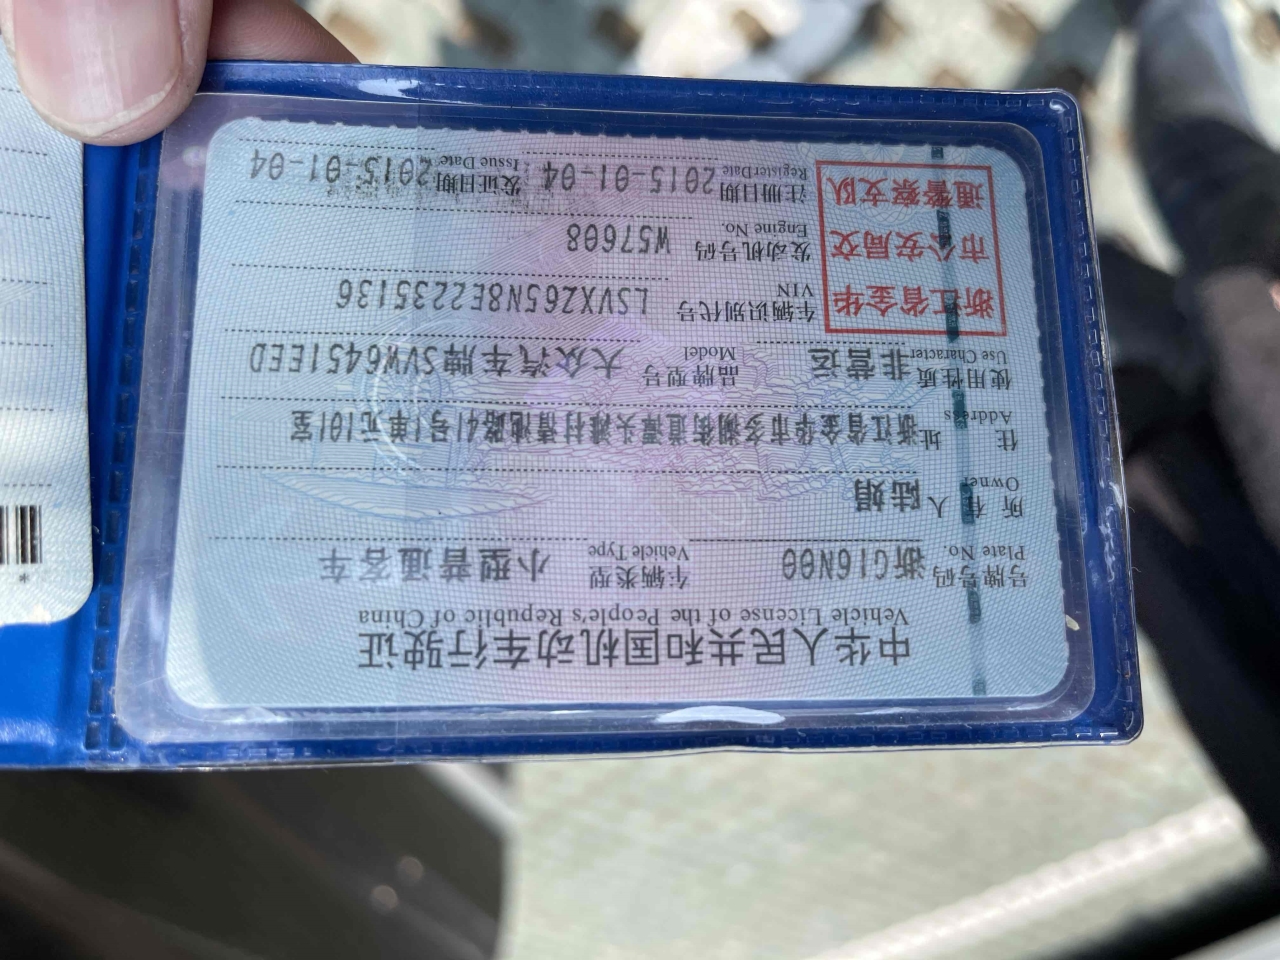 中华人民共和国机动车行驶证
Vehicle License of the People's Republic of China
号牌号码 浙G16N00 车辆类型 小型普通客车
Plate No. Vehicle Type
所有人 陆娟
Owner
住址 浙江省金华市婺城街道潭头滩村清池路41号1单元101室
Address
使用性质 非营运 品牌型号 大众汽车牌SVW6451EED
Use Character Model
浙江省金华
市公安局交
通警察支队
车辆识别代号 LSVXZ65N8E2235136
VIN
发动机号码 W57608
Engine No.
注册日期 2015-01-04 发证日期 2015-01-04
Register Date Issue Date
*